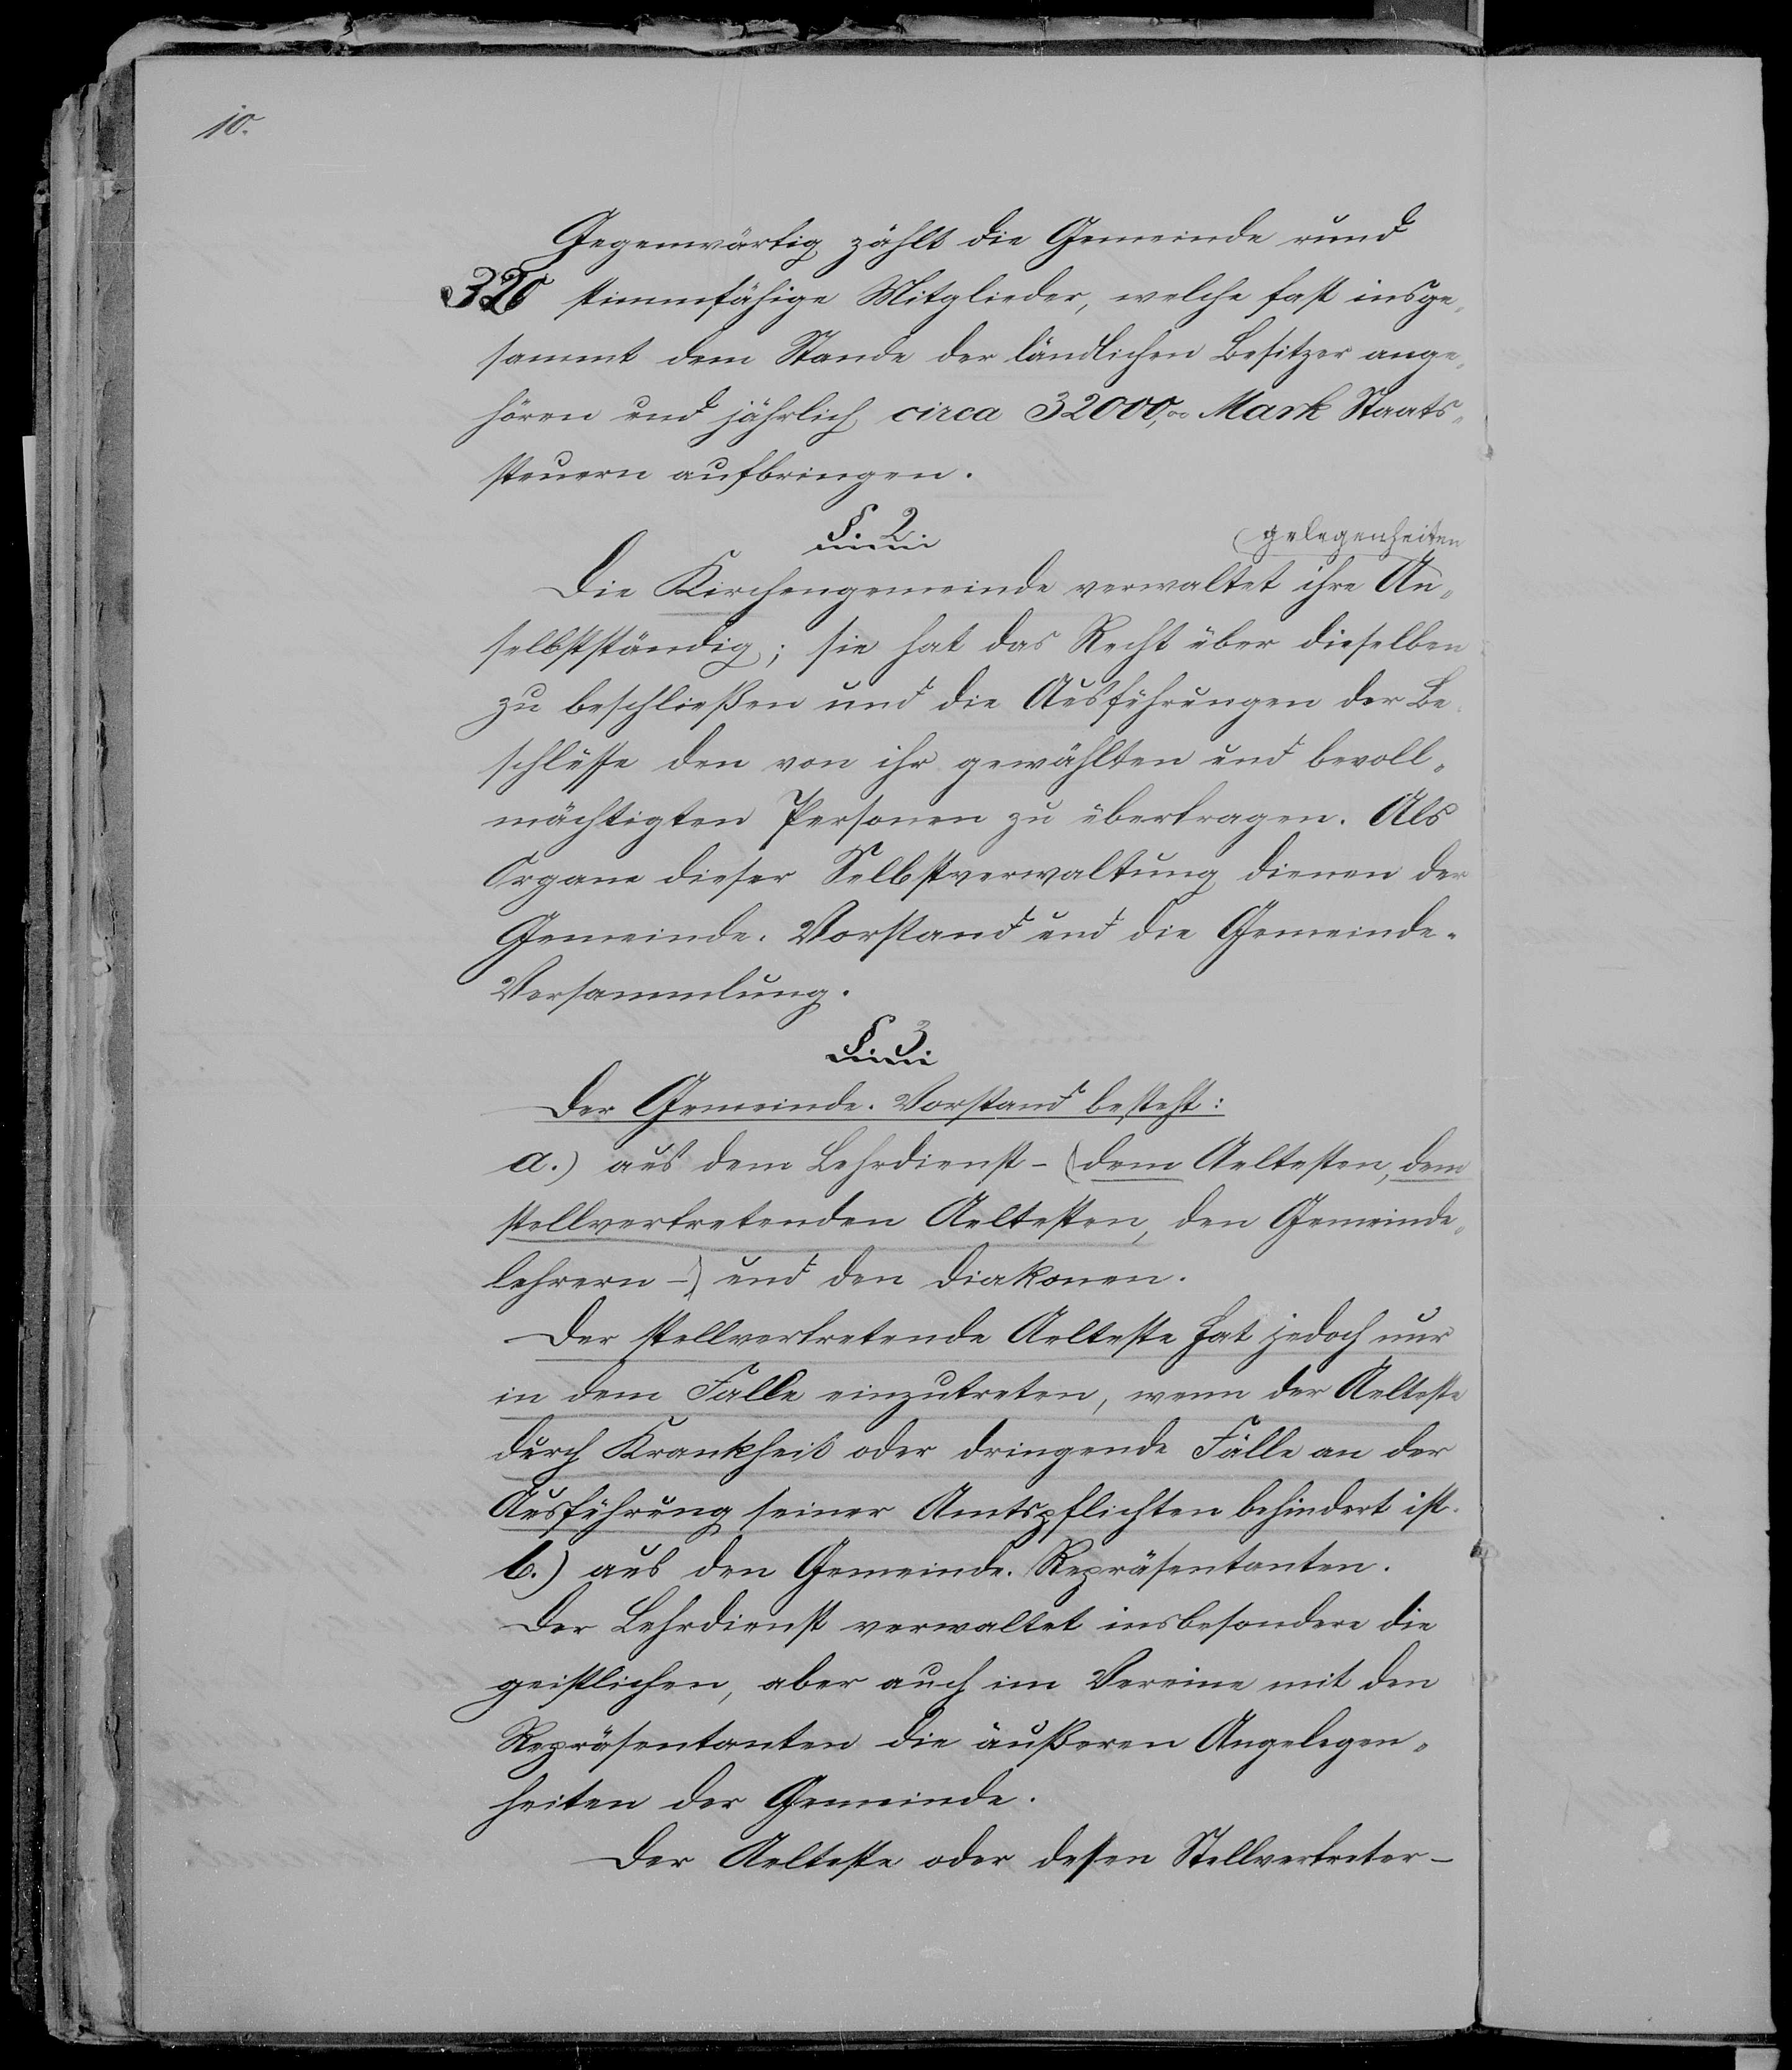 10.
Gegenwärtig zählt die Gemeinde rund
320 stimmfähige Mitglieder, welche fast insge-
sammt dem Stande der ländlichen Besitzer ange-
hören und jährlich circa 32000,00 Mark Staats-
steuern aufbringen.
§. 2.
gelegenheiten
Die Kirchengemeinde verwaltet ihre An-
selbstständig; sie hat das Recht über dieselben
zu beschließen und die Ausführungen der Be-
schlüsse den von ihr gewählten und bevoll-
mächtigten Personen zu übertragen. Als
Organe dieser Selbstverwaltung dienen der
Gemeinde-Vorstand und die Gemeinde-
Versammlung.
§ 3
Der Gemeinde-Vorstand besteht:
a.) aus dem Lehrdienst - (dem Aeltesten, dem
stellvertretenden Aeltesten, den Gemeinde-
lehrern -) und den Diakonen.
Der stellvertretende Aelteste hat jedoch nur
in dem Falle einzutreten, wenn der Aelteste
durch Krankheit oder dringende Fälle an der
Ausführung seiner Amtspflichten behindert ist.
b.) aus den Gemeinde-Repräsentanten.
Der Lehrdienst verwaltet insbesondere die
geistlichen, aber auch im Vereine mit den
Repräsentanten die äußeren Angelegen-
heiten der Gemeinde.
Der Aelteste oder dessen Stellvertreter -